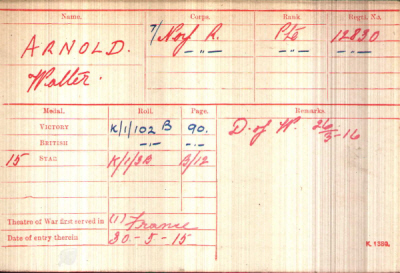 Name. Corps. Rank. Regtl. No.
ARNOLD. 7/Norf R. Pte 12830
Walter. —"— —"—
Medal. Roll. Page. Remarks.
VICTORY K/1/102 B 90. D. of W. 26/3-16
BRITISH —"— —"—
15 STAR K/1/3B B/12
Theatre of War first served in (1) France
Date of entry therein 30-5-15
K. 1380.